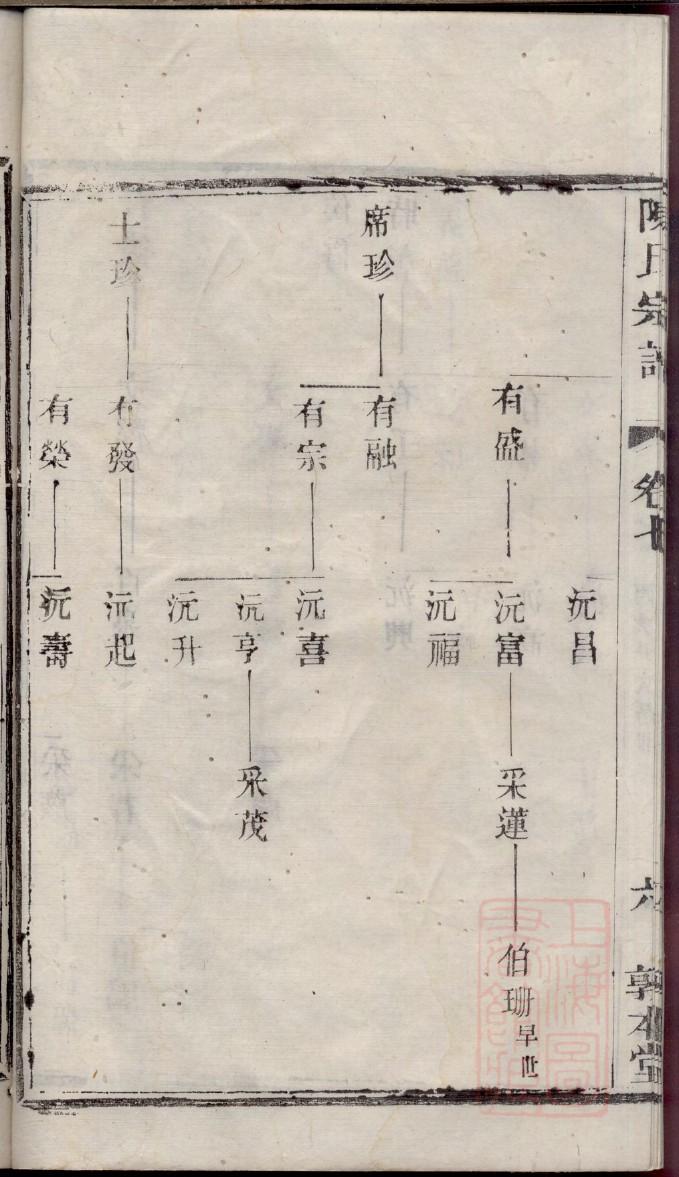 陳氏宗譜
卷七
六
敦本堂
沅昌
有盛
沅富
采蓮
伯珊早世
沅福
席珍
有融
有宗
沅喜
沅亨
采茂
沅升
士珍
有發
沅起
有榮
沅壽
上海圖書館藏